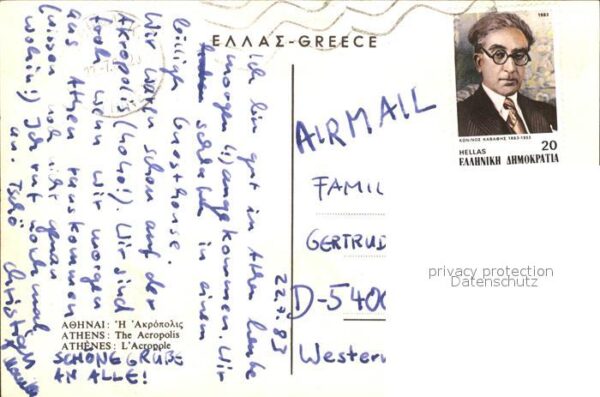 ΕΛΛΑΣ-GREECE
22.7.83
Ich bin gut in Athen heute
morgen (!) angekommen. Wir
schlafen in einem
billigen Guesthouse.
Wir waren schon auf der
Akropolis (hoho!). Wir sind
froh wenn wir morgen
aus Athen rauskommen
(wissen noch nicht genau
wohin!) Ich ruf nochmal
an. Tschö
Christian
ΑΘΗΝΑΙ: Ἡ Ἀκρόπολις
ATHENS: The Acropolis
ATHÈNES: L'Acropole
SCHÖNE GRÜßE
AN ALLE!
AIRMAIL
FAMIL
GERTRUD
D-5400
Western
1983
ΚΩΝ/ΝΟΣ ΚΑΒΑΦΗΣ 1863-1933
HELLAS 20
ΕΛΛΗΝΙΚΗ ΔΗΜΟΚΡΑΤΙΑ
privacy protection
Datenschutz